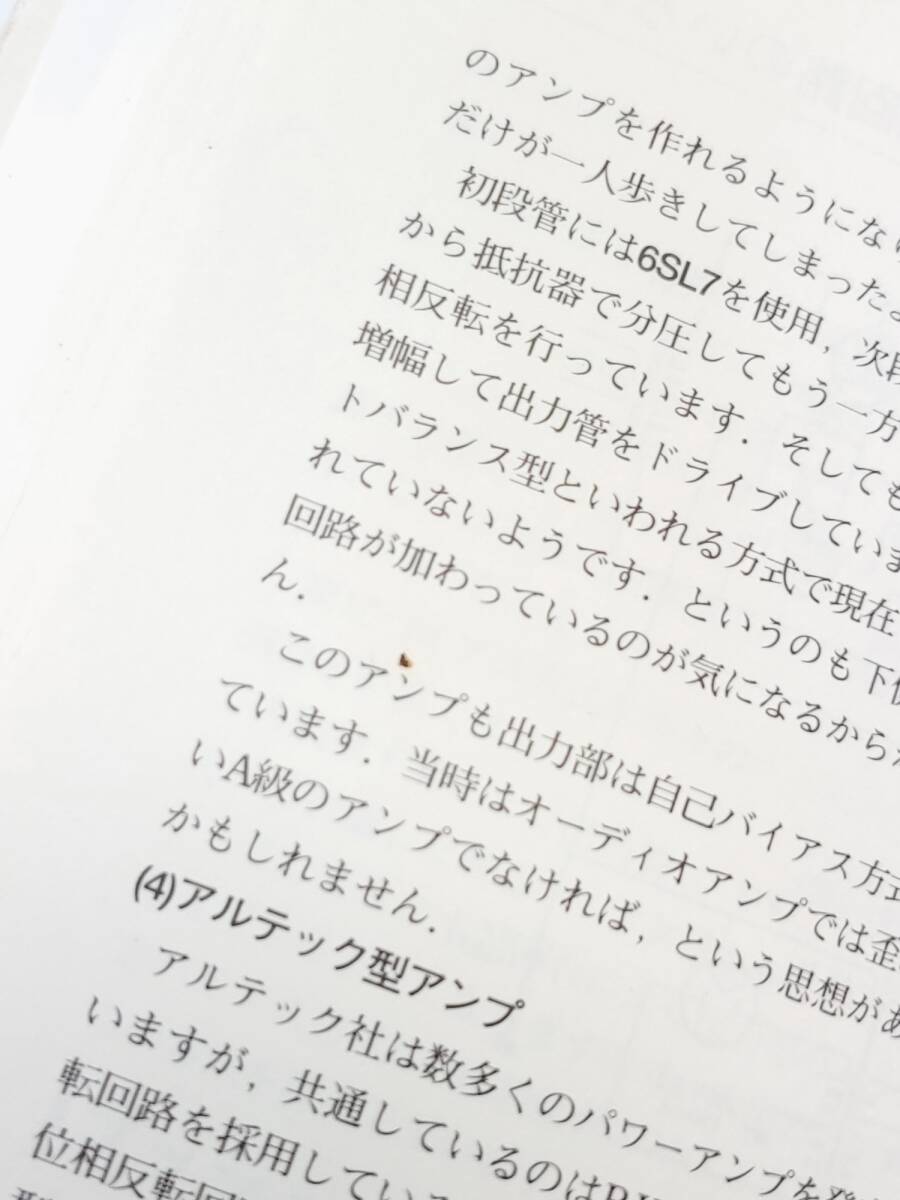 のアンプを作れるようになり
だけが一人歩きしてしまったよ
初段管には6SL7を使用，次段
から抵抗器で分圧してもう一方
相反転を行っています．そしても
増幅して出力管をドライブしていま
トバランス型といわれる方式で現在
れていないようです．というのも下
回路が加わっているのが気になるから
ん．
このアンプも出力部は自己バイアス方式
ています．当時はオーディオアンプでは歪
いA級のアンプでなければ，という思想があ
かもしれません．
(4)アルテック型アンプ
アルテック社は数多くのパワーアンプを
いますが，共通しているのは
転回路を採用してい
位相反転回